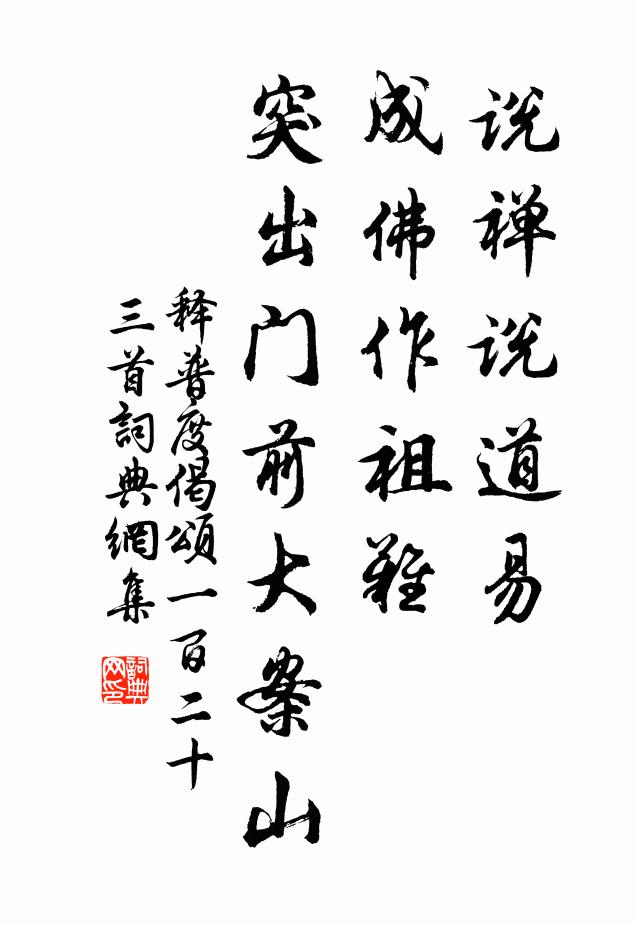 说禅说道易
成佛作祖难
突出门前大案山
释普度偈颂一百二十
三首詞典網集
詞典网印